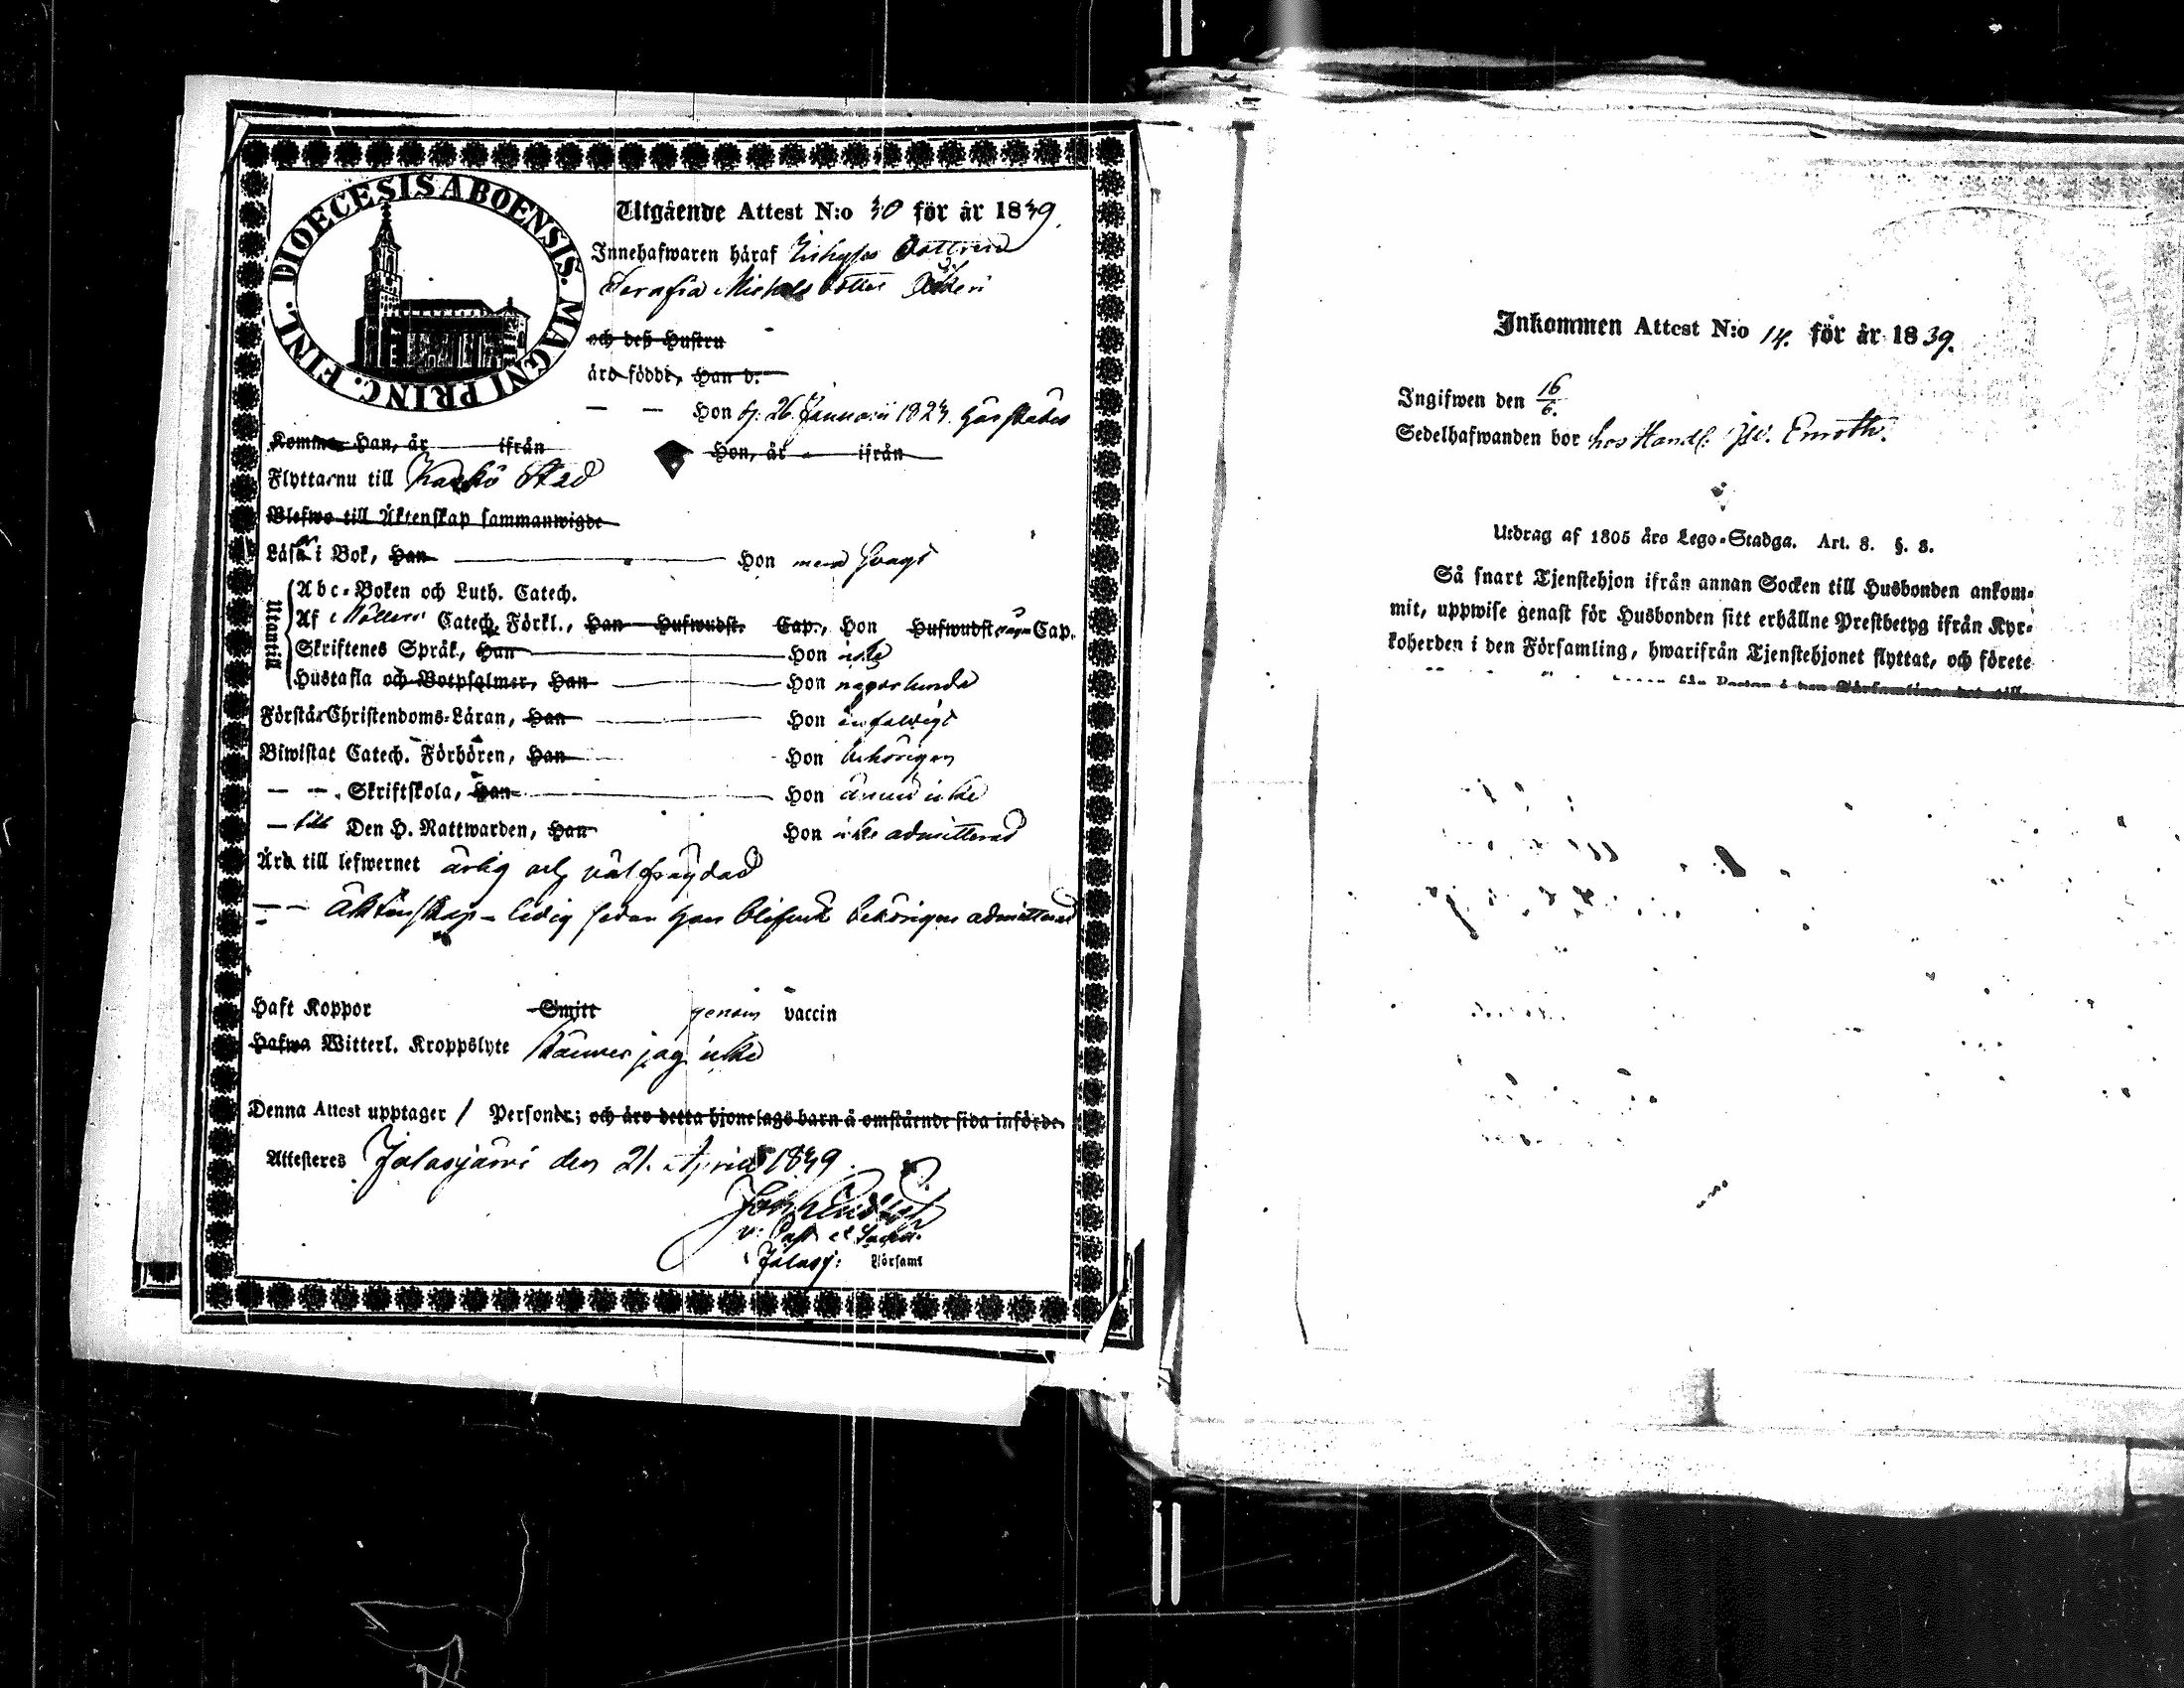 DIOECESIS ABOENSIS. MAGNI PRINC. FINL.
Utgående Attest N:o 30 för år 1839.
Innehafwaren häraf Dottren
Serafia Michels dotter
och deß Hustru
äro födde, Han d.
— — Hon d. 26 Januarii 1823 härstädes
Komme Han, år ifrån Hon, år ifrån
Flyttar nu till Kaskö Stad
Blefwo till Äktenskap sammanwigde
Läser i Bok, Han Hon svagt
Utantill
Abc-Boken och Luth. Catech.
Af Möllers Catech. Förkl., Han Hufwudst. Cap., Hon Hufwudst. Cap.
Skriftenes Språk, Han Hon icke
Hustafla och Botpsalmer, Han Hon någorlunda
Förstår Christendoms-Läran, Han Hon enfaldigt
Biwistat Catech. Förhören, Han Hon behörigen
— — Skriftskola, Han Hon ännu icke
— till Den H. Nattwarden, Han Hon icke admitterad
Äro till lefwernet ärlig och väl frägdad
— — äktenskap - ledig sedan hon blifwit behörigen admitterad
Haft Koppor Smitt genom vaccin
Hafwa Witterl. Kroppslyte känner jag icke
Denna Attest upptager 1 Personer; och äro detta hjonelags barn å omstående sida införde.
Attesteres Jalasjärvi den 21. April 1839.
v. Past. et Sacell.
i Jalasj: Församl
Inkommen Attest N:o 14. för år 1839.
Ingifwen den 16/6.
Sedelhafwanden bor hos Handl: Enroth.
Utdrag af 1805 års Lego-Stadga. Art. 8. §. 3.
Så snart Tjenstehjon ifrån annan Socken till Husbonden ankom-
mit, uppwise genast för Husbonden sitt erhållne Prestbetyg ifrån Kyr-
koherden i den Församling, hwarifrån Tjenstehjonet flyttat, och förete